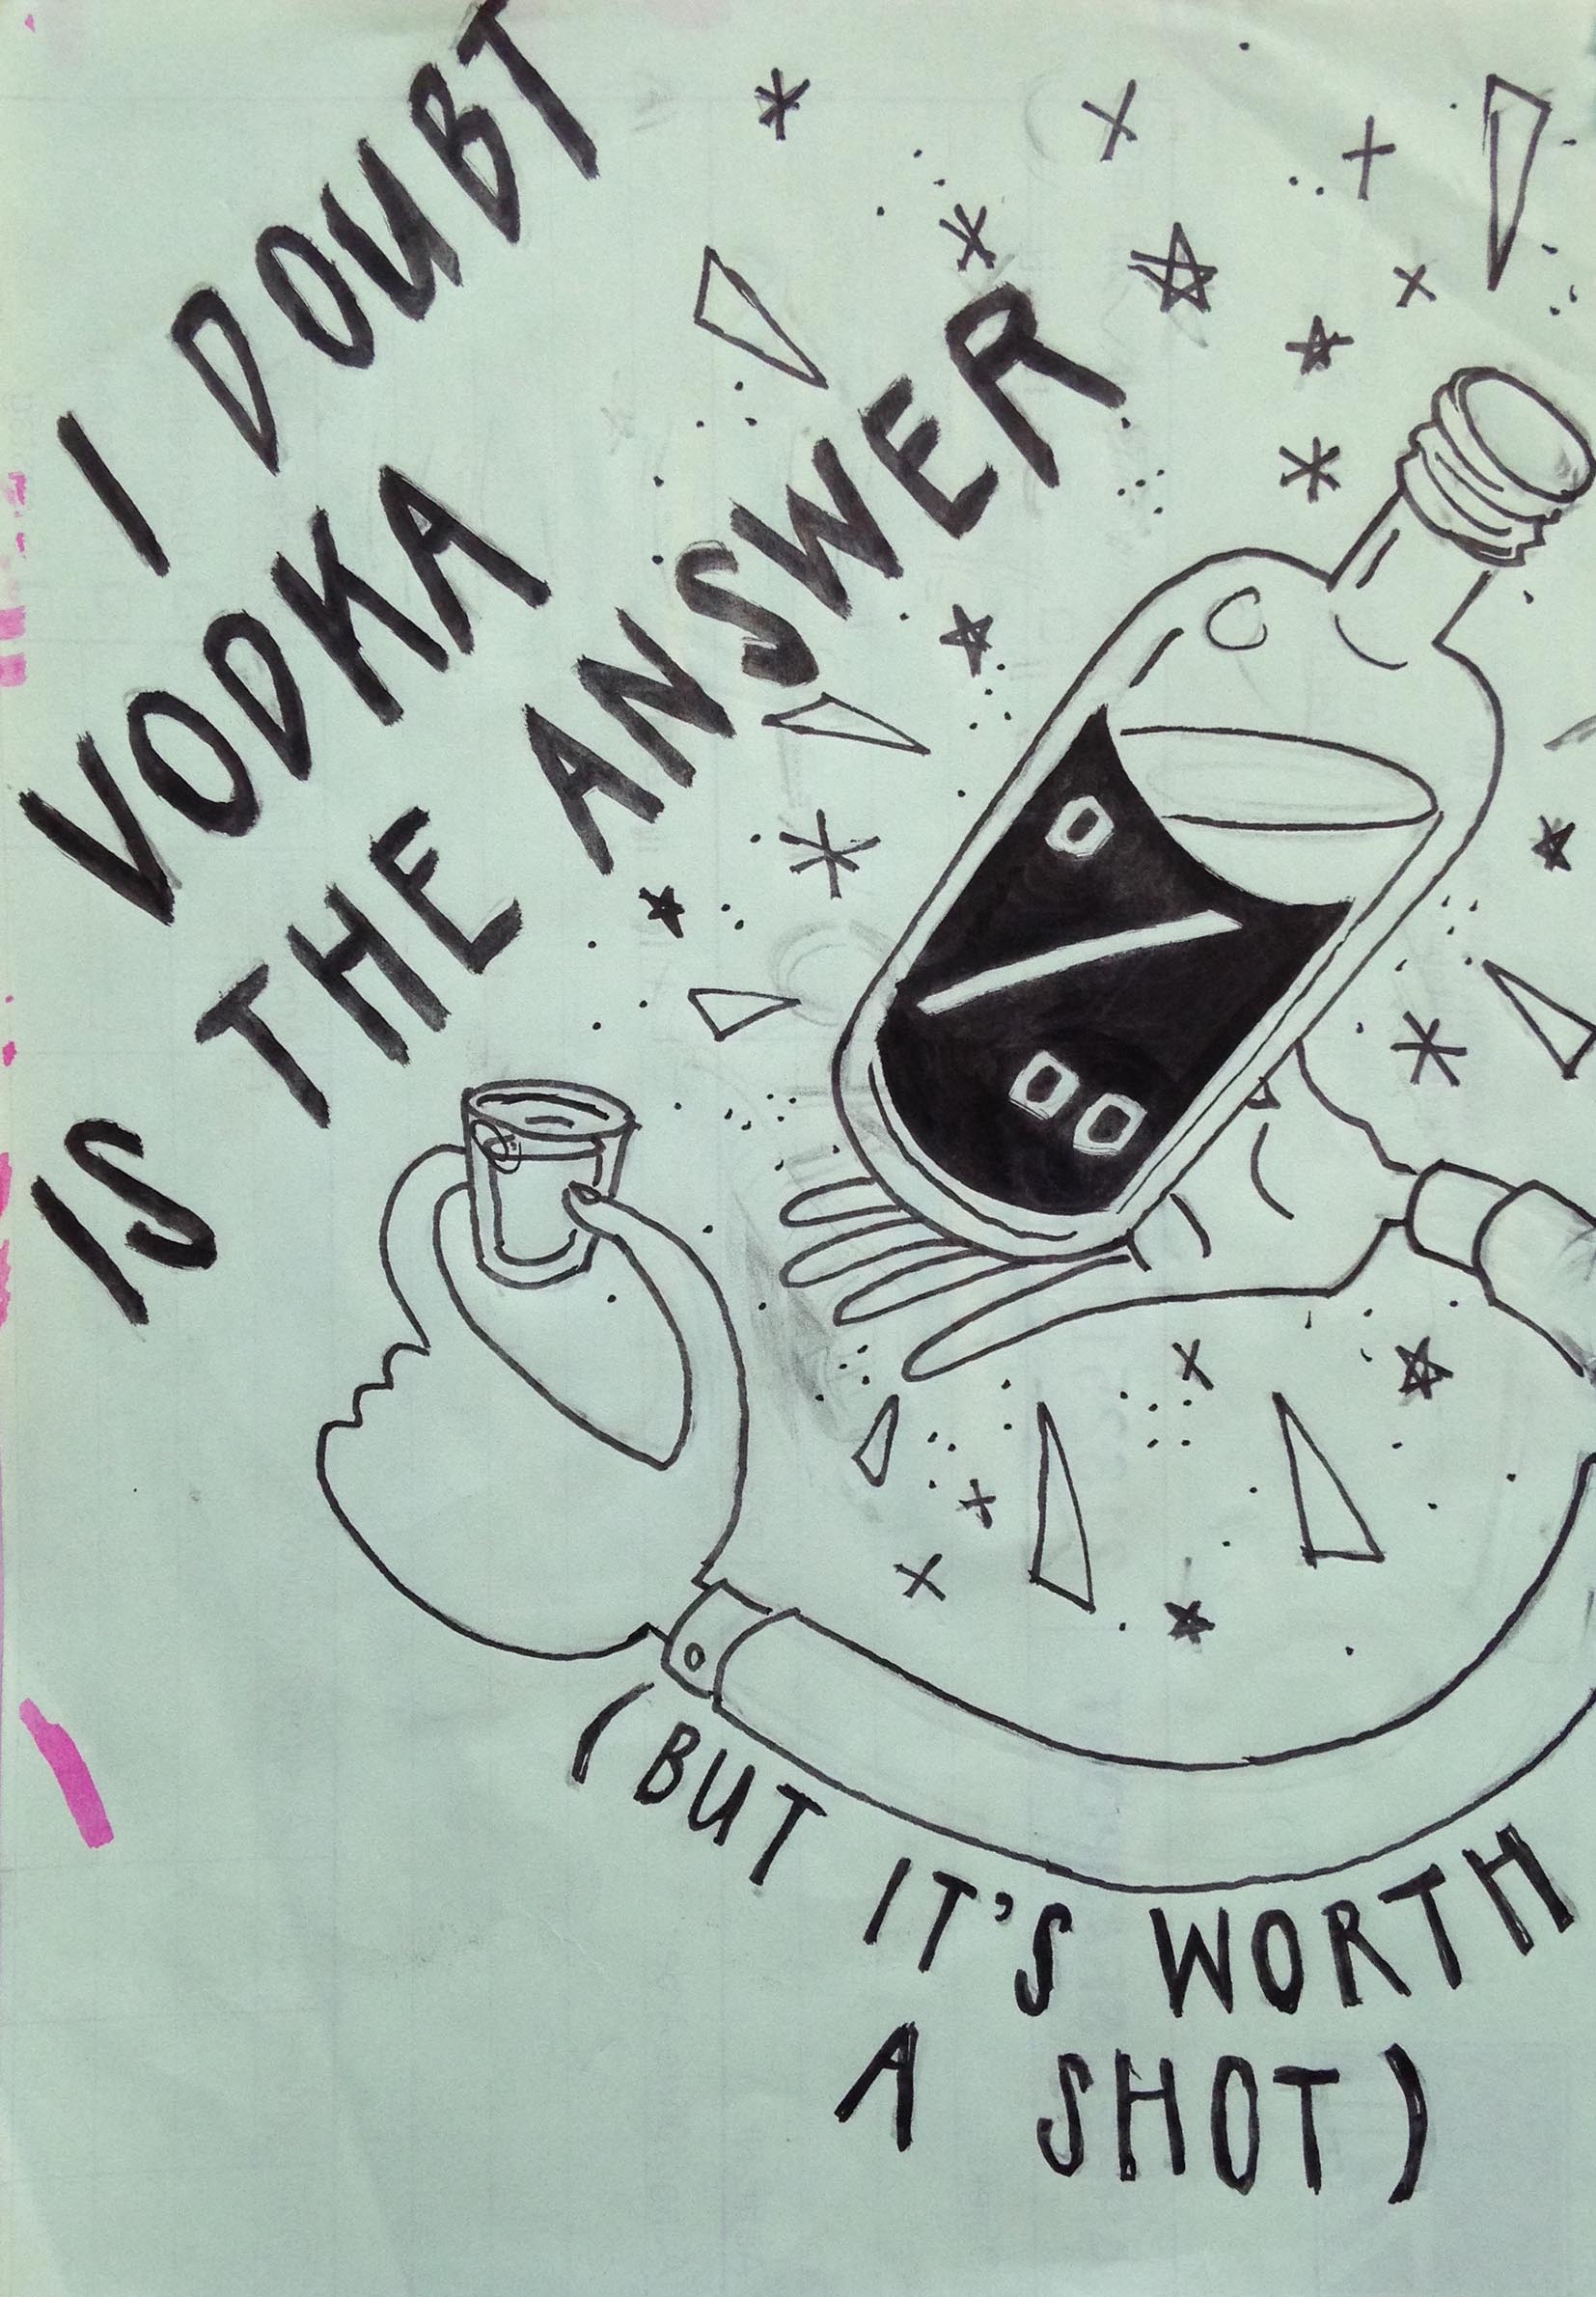 I DOUBT
VODKA
IS THE ANSWER
%
(BUT IT'S WORTH
A SHOT)